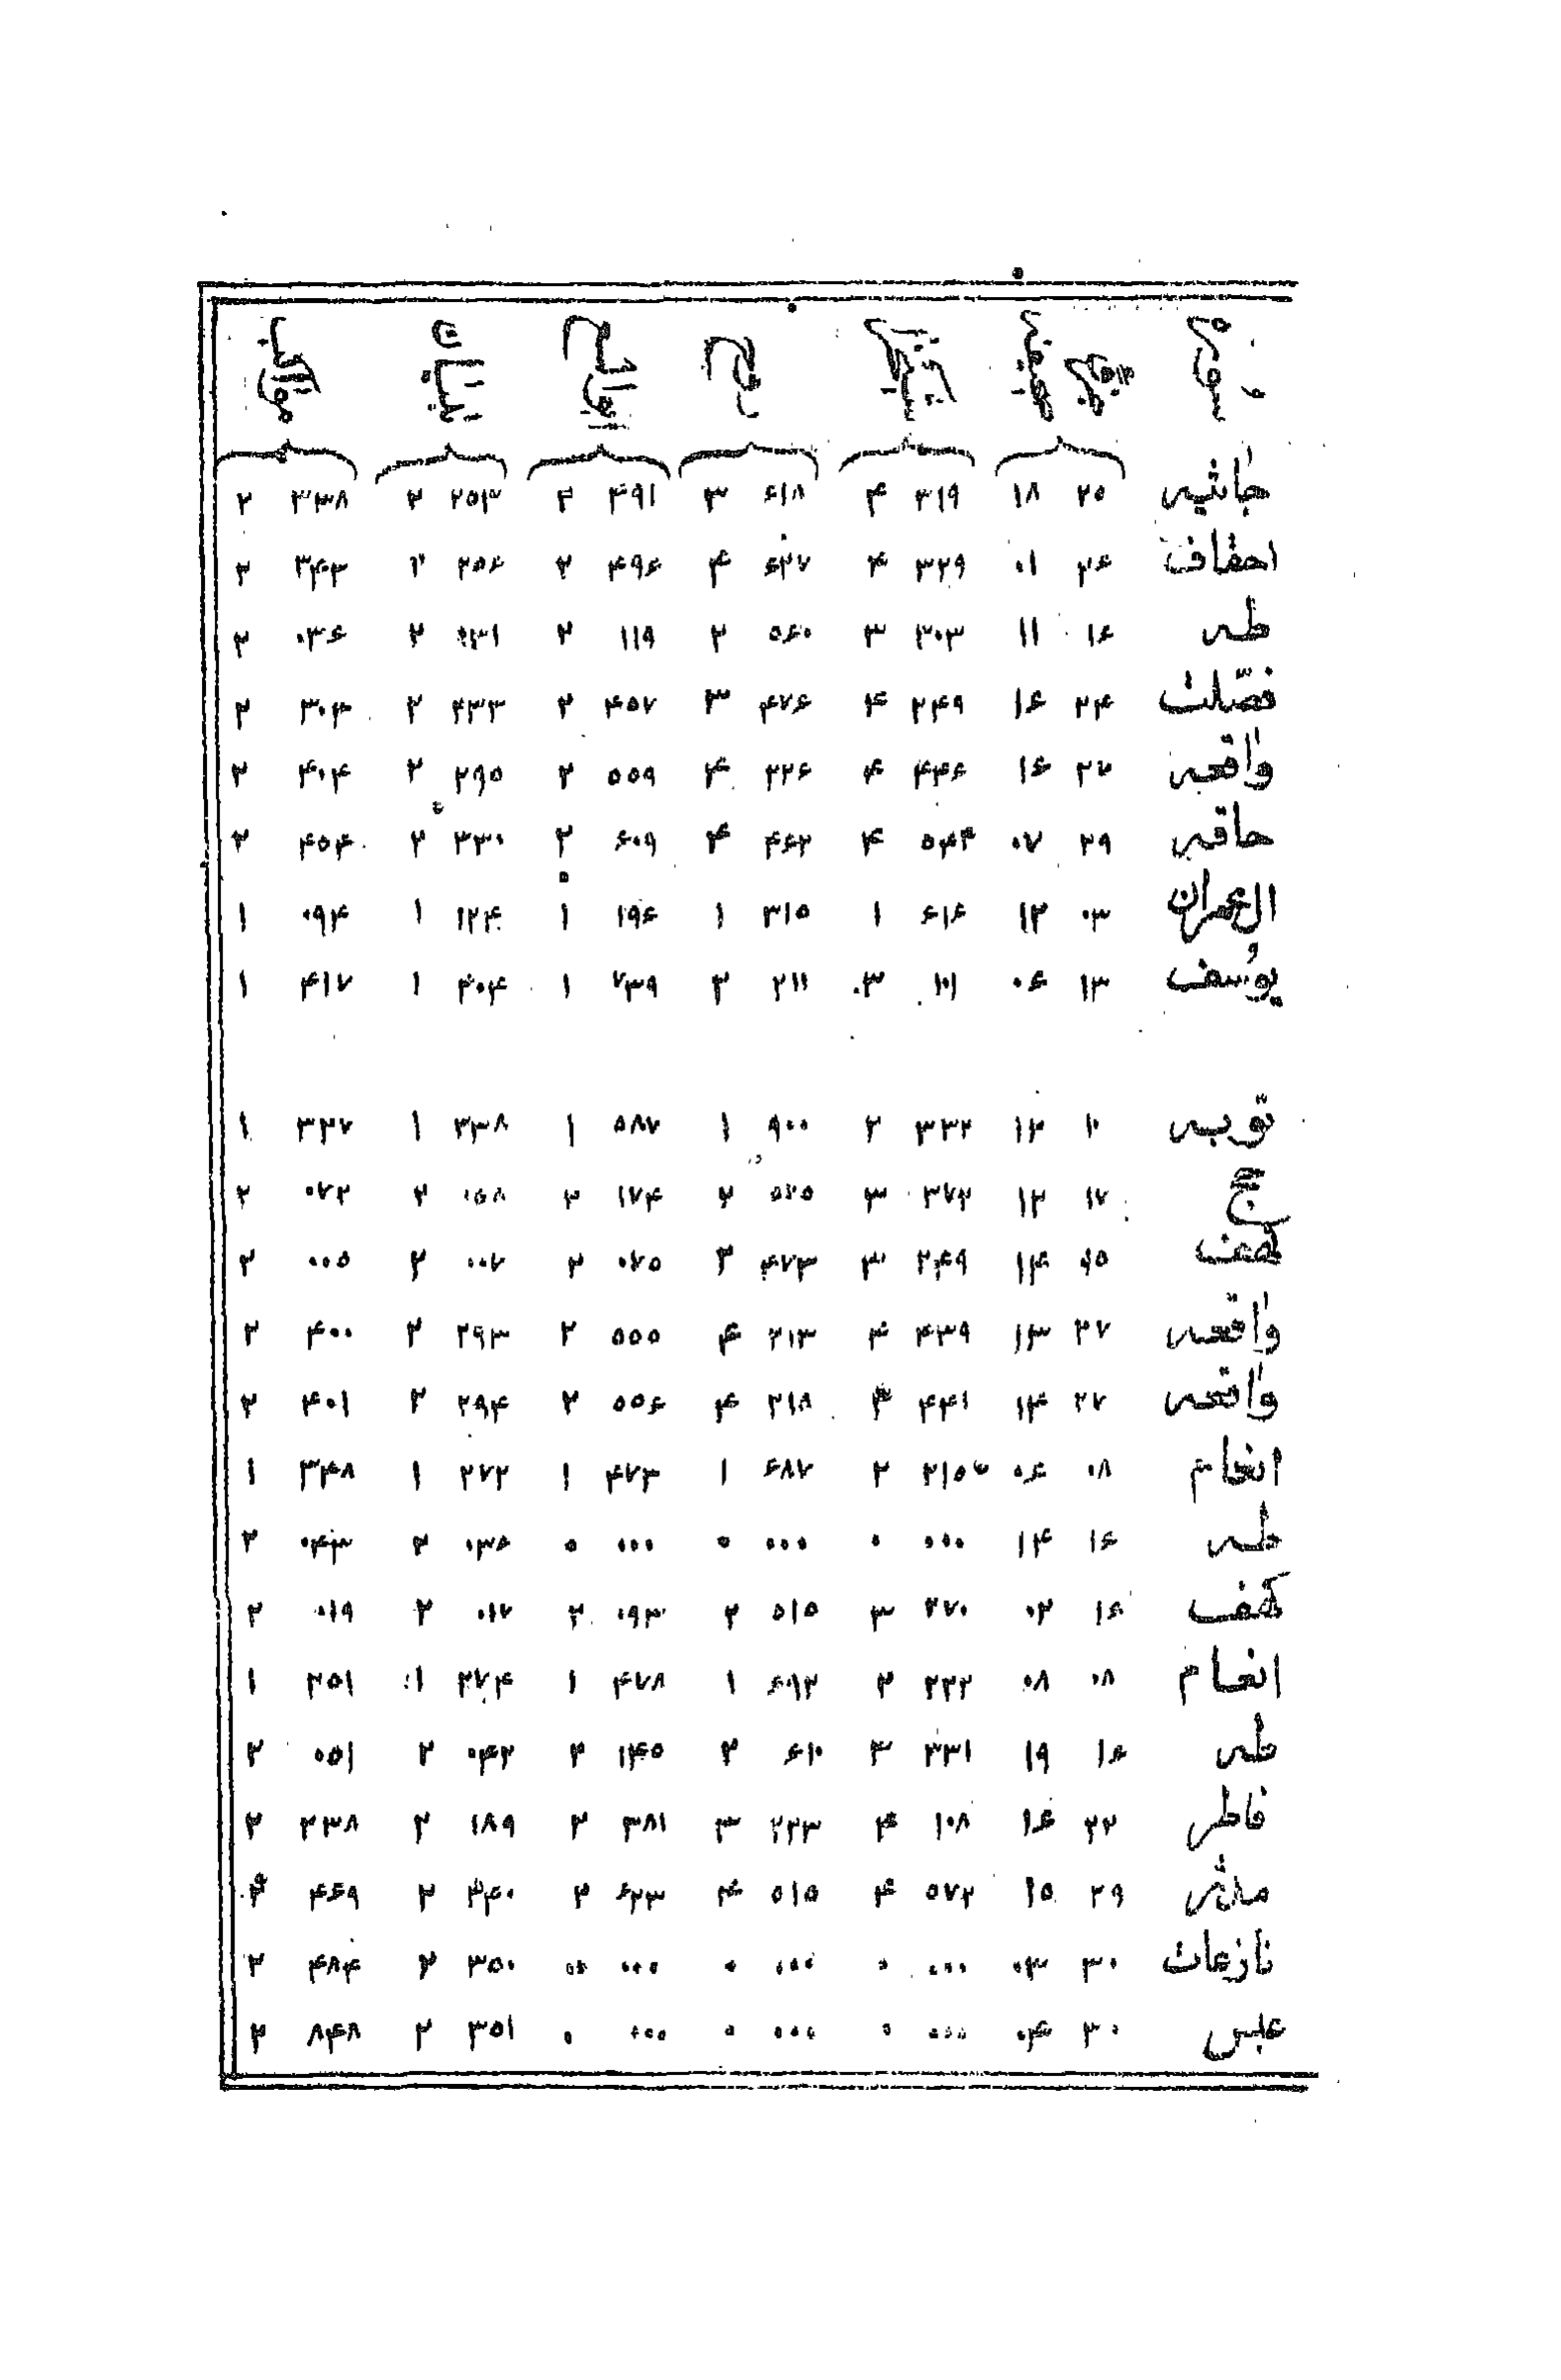 جاثیه ۲۵ ۱۸ ۳۱۹ ۴ ۶۱۸ ۳ ۴۹۱ ۲ ۲۵۳ ۲ ۳۳۸ ۲
احقاف ۲۶ ۰۱ ۳۲۹ ۴ ۶۳۷ ۴ ۴۹۶ ۲ ۲۵۶ ۲ ۳۴۳ ۲
طه ۱۶ ۱۱ ۳۰۳ ۳ ۵۶۰ ۲ ۱۱۹ ۲ ۰۳۱ ۲ ۰۳۶ ۲
فصّلت ۲۴ ۱۶ ۲۴۹ ۴ ۴۷۶ ۳ ۴۵۷ ۲ ۲۳۳ ۲ ۳۰۴ ۲
واقعه ۲۷ ۱۶ ۴۴۶ ۴ ۲۲۶ ۴ ۵۵۹ ۲ ۲۹۵ ۲ ۴۰۴ ۲
حاقه ۲۹ ۰۷ ۵۴۴ ۴ ۴۶۲ ۴ ۶۰۹ ۲ ۳۳۰ ۲ ۴۵۴ ۲
ال عمران ۰۳ ۱۲ ۶۱۶ ۱ ۳۱۵ ۱ ۱۹۶ ۱ ۱۲۴ ۱ ۰۹۴ ۱
یوسف ۱۳ ۰۶ ۱۰۱ ۳ ۲۱۱ ۲ ۷۳۹ ۱ ۴۰۴ ۱ ۴۱۷ ۱
توبه ۱۰ ۱۲ ۳۳۲ ۲ ۹۰۰ ۱ ۵۸۷ ۱ ۳۳۸ ۱ ۳۲۷ ۱
حج ۱۷ ۱۲ ۳۷۲ ۳ ۵۲۵ ۲ ۱۷۴ ۲ ۰۵۸ ۲ ۰۷۲ ۲
کهف ۱۵ ۱۴ ۲۴۹ ۳ ۴۷۳ ۲ ۰۷۵ ۲ ۰۰۷ ۲ ۰۰۵ ۲
واقعه ۲۷ ۱۳ ۴۳۹ ۴ ۲۱۳ ۴ ۵۵۵ ۲ ۲۹۳ ۲ ۴۰۰ ۲
واقعه ۲۷ ۱۴ ۴۴۱ ۴ ۲۱۸ ۴ ۵۵۶ ۲ ۲۹۴ ۲ ۴۰۱ ۲
انعام ۰۸ ۰۶ ۲۱۵ ۲ ۶۸۷ ۱ ۴۷۳ ۱ ۲۷۲ ۱ ۳۴۸ ۱
طه ۱۶ ۱۴ ۰۰۰ ۰ ۰۰۰ ۰ ۰۰۰ ۰ ۰۳۶ ۲ ۰۴۳ ۲
کهف ۱۶ ۰۲ ۲۷۰ ۳ ۵۱۵ ۲ ۰۹۳ ۲ ۰۱۷ ۲ ۰۱۹ ۲
انعام ۰۸ ۰۸ ۲۲۲ ۲ ۶۹۲ ۱ ۴۷۸ ۱ ۲۷۴ ۱ ۲۵۱ ۱
طه ۱۶ ۱۹ ۳۳۱ ۳ ۶۱۰ ۲ ۱۴۵ ۲ ۰۴۲ ۲ ۰۵۱ ۲
فاطر ۲۲ ۱۶ ۱۰۸ ۴ ۲۲۳ ۳ ۳۸۱ ۲ ۱۸۹ ۲ ۲۳۸ ۲
مدثر ۲۹ ۱۵ ۵۷۲ ۴ ۵۱۵ ۴ ۶۲۳ ۲ ۳۴۰ ۲ ۴۶۹ ۲
نازعات ۳۰ ۰۳ ۰۰۰ ۰ ۰۰۰ ۰ ۰۰۰ ۰۰ ۳۵۰ ۲ ۴۸۴ ۲
عبس ۳۰ ۰۴ ۰۰۰ ۰ ۰۰۰ ۰ ۰۰۰ ۰ ۳۵۱ ۲ ۸۴۸ ۲